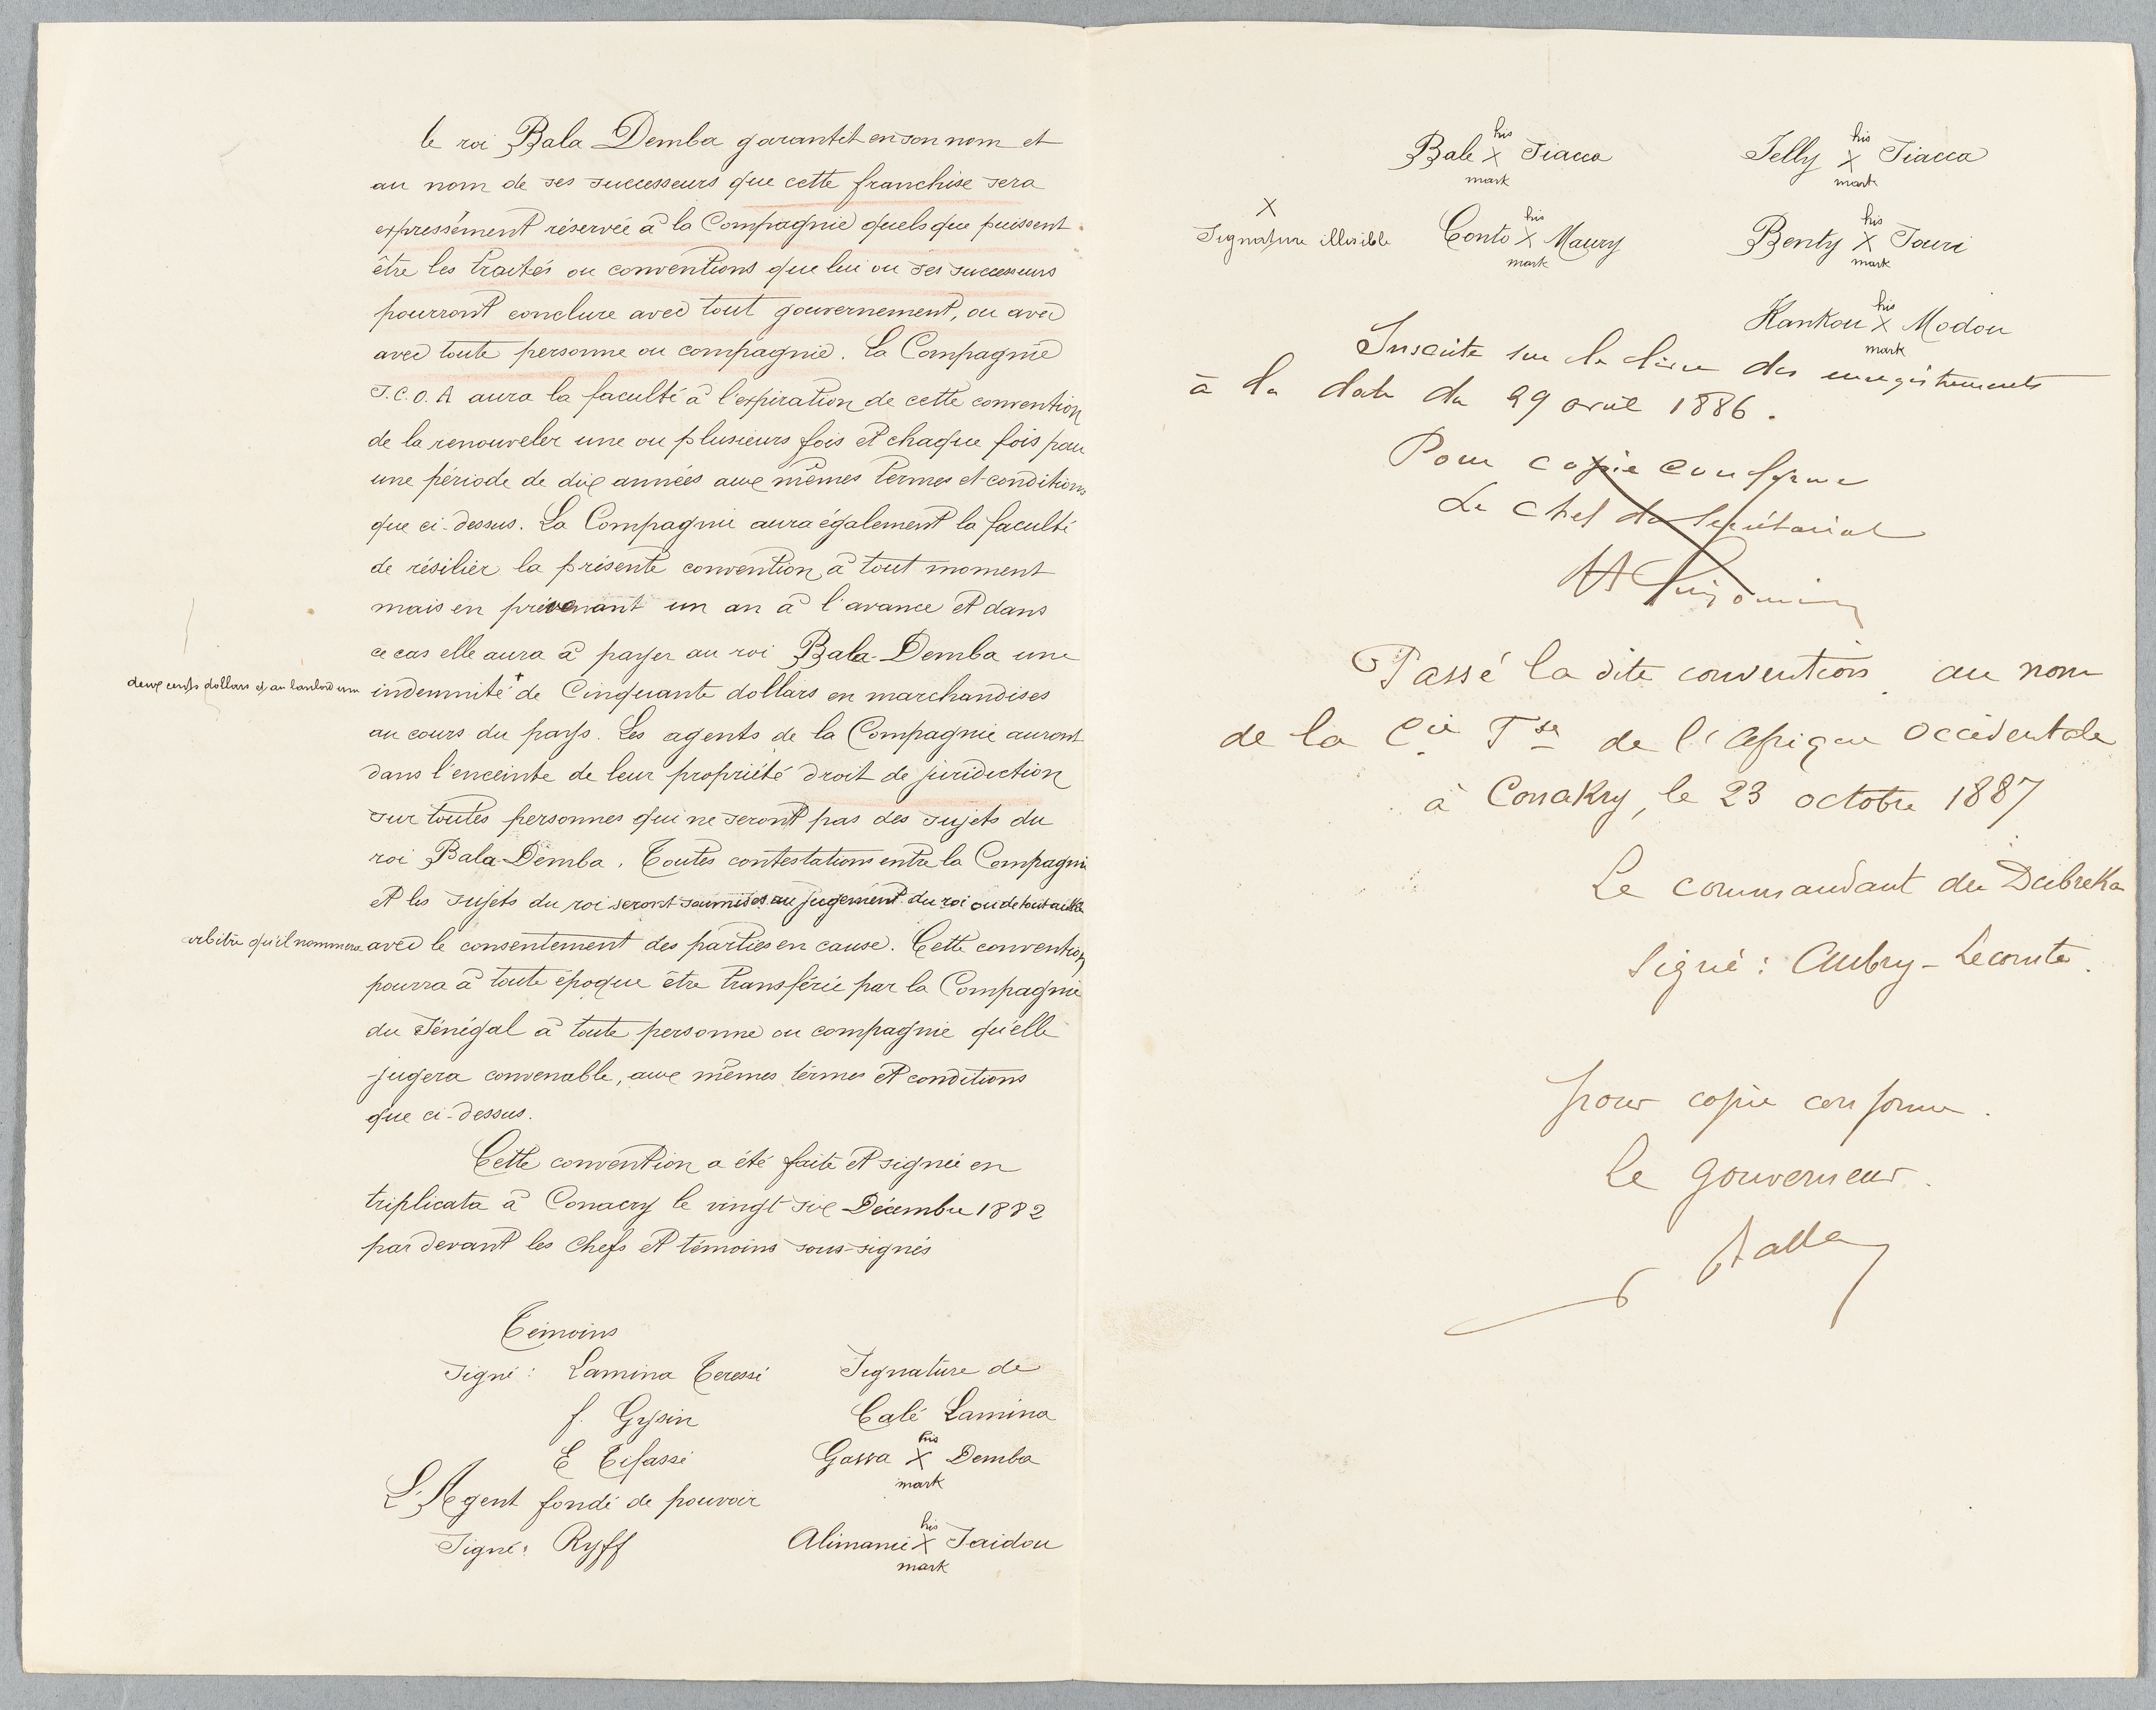 le roi Bala Demba garantit en son nom et
au nom de ses successeurs que cette franchise sera
expressément réservée à la Compagnie quels que puissent
être les traités ou conventions que lui ou ses successeurs
pourront conclure avec tout gouvernement, ou avec
avec toute personne ou compagnie. La Compagnie
S.C.O.A aura la faculté à l'expiration de cette convention
de la renouveler une ou plusieurs fois et chaque fois pour
une période de dix années aux mêmes termes et conditions
que ci-dessus. La Compagnie aura également la faculté
de résilier la présente convention à tout moment
mais en prévenant un an à l'avance et dans
ce cas elle aura à payer au roi Bala-Demba une
deux cents dollars et au landlord une
indemnité + de Cinquante dollars en marchandises
au cours du pays. Les agents de la Compagnie auront
dans l'enceinte de leur propriété droit de juridiction
sur toutes personnes qui ne seront pas des sujets du
roi Bala-Demba. Toutes contestations entre la Compagnie
et les sujets du roi seront soumises au jugement du roi ou de tout autre
arbitre qu'il nommera avec le consentement des parties en cause. Cette convention
pourra à toute époque être transférée par la Compagnie
du Sénégal à toute personne ou compagnie qu'elle
jugera convenable, aux mêmes termes et conditions
que ci-dessus.
Cette convention a été faite et signée en
triplicata à Conacry le vingt six Décembre 1882
par devant les Chefs et témoins sous-signés
Témoins
Signé : Lamina Teressi
f. Gysin
E Tifassi
L'Agent fondé de pouvoir
Signé : Ryff
Signature de
Calé Lamina
his
Gassa X Demba
mark
his
Alimanie X Saidou
mark
his
Bale X Siacca
mark
his
Selly X Siacca
mark
X
Signature illisible
his
Conto X Maury
mark
his
Benty X Souri
mark
his
Kankou X Modou
mark
Inscrite sur le livre des enregistrements
à la date du 29 avril 1886.
Pour copie conforme
Le Chef du Secrétariat
Passé la dite convention au nom
de la Cie Fse de l'Afrique Occidentale
à Conakry, le 23 octobre 1887
Le commandant de Dubreka
Signé : Aubry-Lecomte.
pour copie conforme.
Le Gouverneur.
Ballay